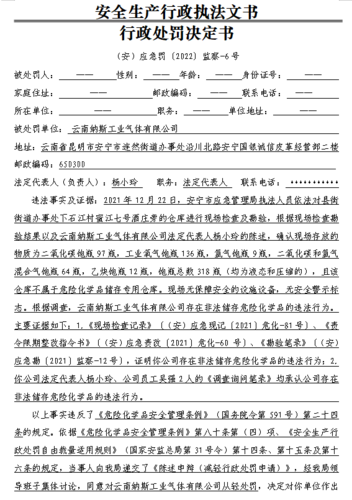 安全生产行政执法文书
行政处罚决定书
（安）应急罚〔2022〕监察-6号
被处罚人：——性别：——年龄：——身份证号：——
家庭住址：——邮政编码：——联系电话：——
所在单位：——职务：——单位地址：——
被处罚单位：云南纳斯工业气体有限公司
地址：云南省昆明市安宁市连然街道办事处沿川北路安宁国银诚信皮革经营部二楼
邮政编码：650300
法定代表人（负责人）：杨小玲 职务：法定代表人 联系电话：***********
违法事实及证据：2021年12月22日，安宁市应急管理局执法人员依法对县街
街道办事处下石江村滴江七号酒庄旁的仓库进行现场检查及勘验，根据现场检查勘
验结果以及云南纳斯工业气体有限公司法定代表人杨小玲的陈述，确认现场存放的
物质为二氧化碳他瓶97瓶，工业氧气他瓶136瓶，氩气他瓶9瓶，二氧化碳和氩气
混合气他瓶64瓶，乙炔他瓶12瓶，他瓶总数318瓶（均为液态和压缩的），且该
仓库不属于危险化学品储存专用仓库。现场无保障安全的设施设备，无安全警示标
志。根据调查，云南纳斯工业气体有限公司存在非法储存危险化学品的违法行为。
主要证据如下：1、《现场检查记录》（（安）应急现记〔2021〕危化-81号）、《责
令限期整改指令书》（（安）应急责改〔2021〕危化-60号）、《勘验笔录》（（安）
应急勘〔2021〕监察-12号），证明你公司存在非法储存危险化学品的违法行为；2、
你公司法定代表人杨小玲、公司员工吴强2人的《调查询问笔录》均承认公司存在
非法储存危险化学品的违法行为。
以上事实违反了《危险化学品安全管理条例》（国务院令第591号）第二十四
条的规定。依据《危险化学品安全管理条例》第八十条第（四）项、《安全生产行
政处罚自由裁量适用规则》（国家安监总局第31号令）第十四条、第十五条及第十
六条的规定，当事人向我局递交了《陈述申辩（减轻行政处罚申请）》，经我局领
导班子集体讨论，同意对云南纳斯工业气体有限公司从轻处罚，决定对你单位作出